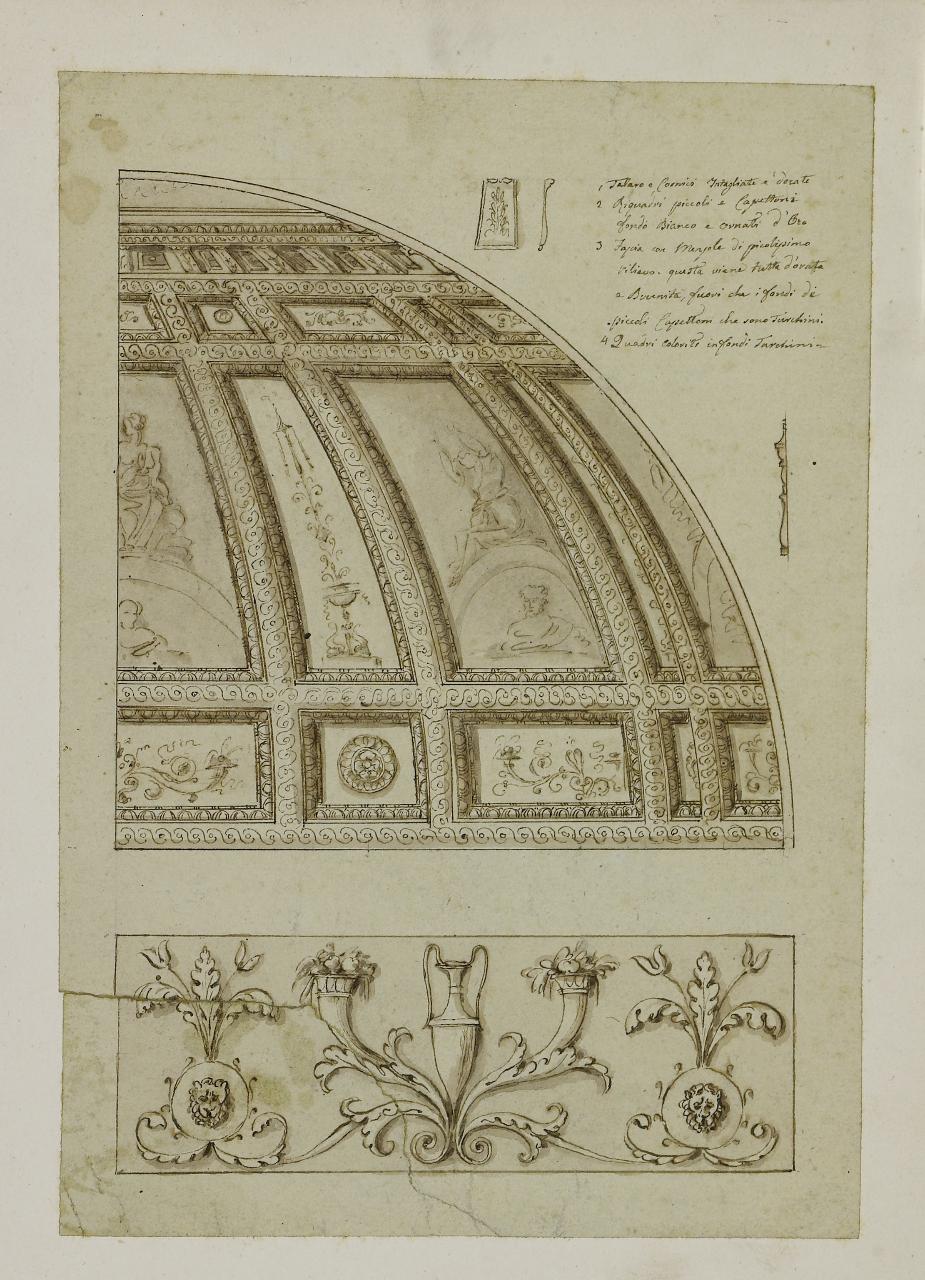 1 Talaro e Cornici Intagliate e dorate
2 Riquadri piccoli e Capettoni
fondo Bianco e ornati d'Oro
3 Fascia con Mensole di picolissimo
rilievo. questa viene tutta dorata
e Brunita, fuori che i fondi de
piccoli Cassettoni che sono Turchini.
4 Quadri coloriti in fondi Turchini